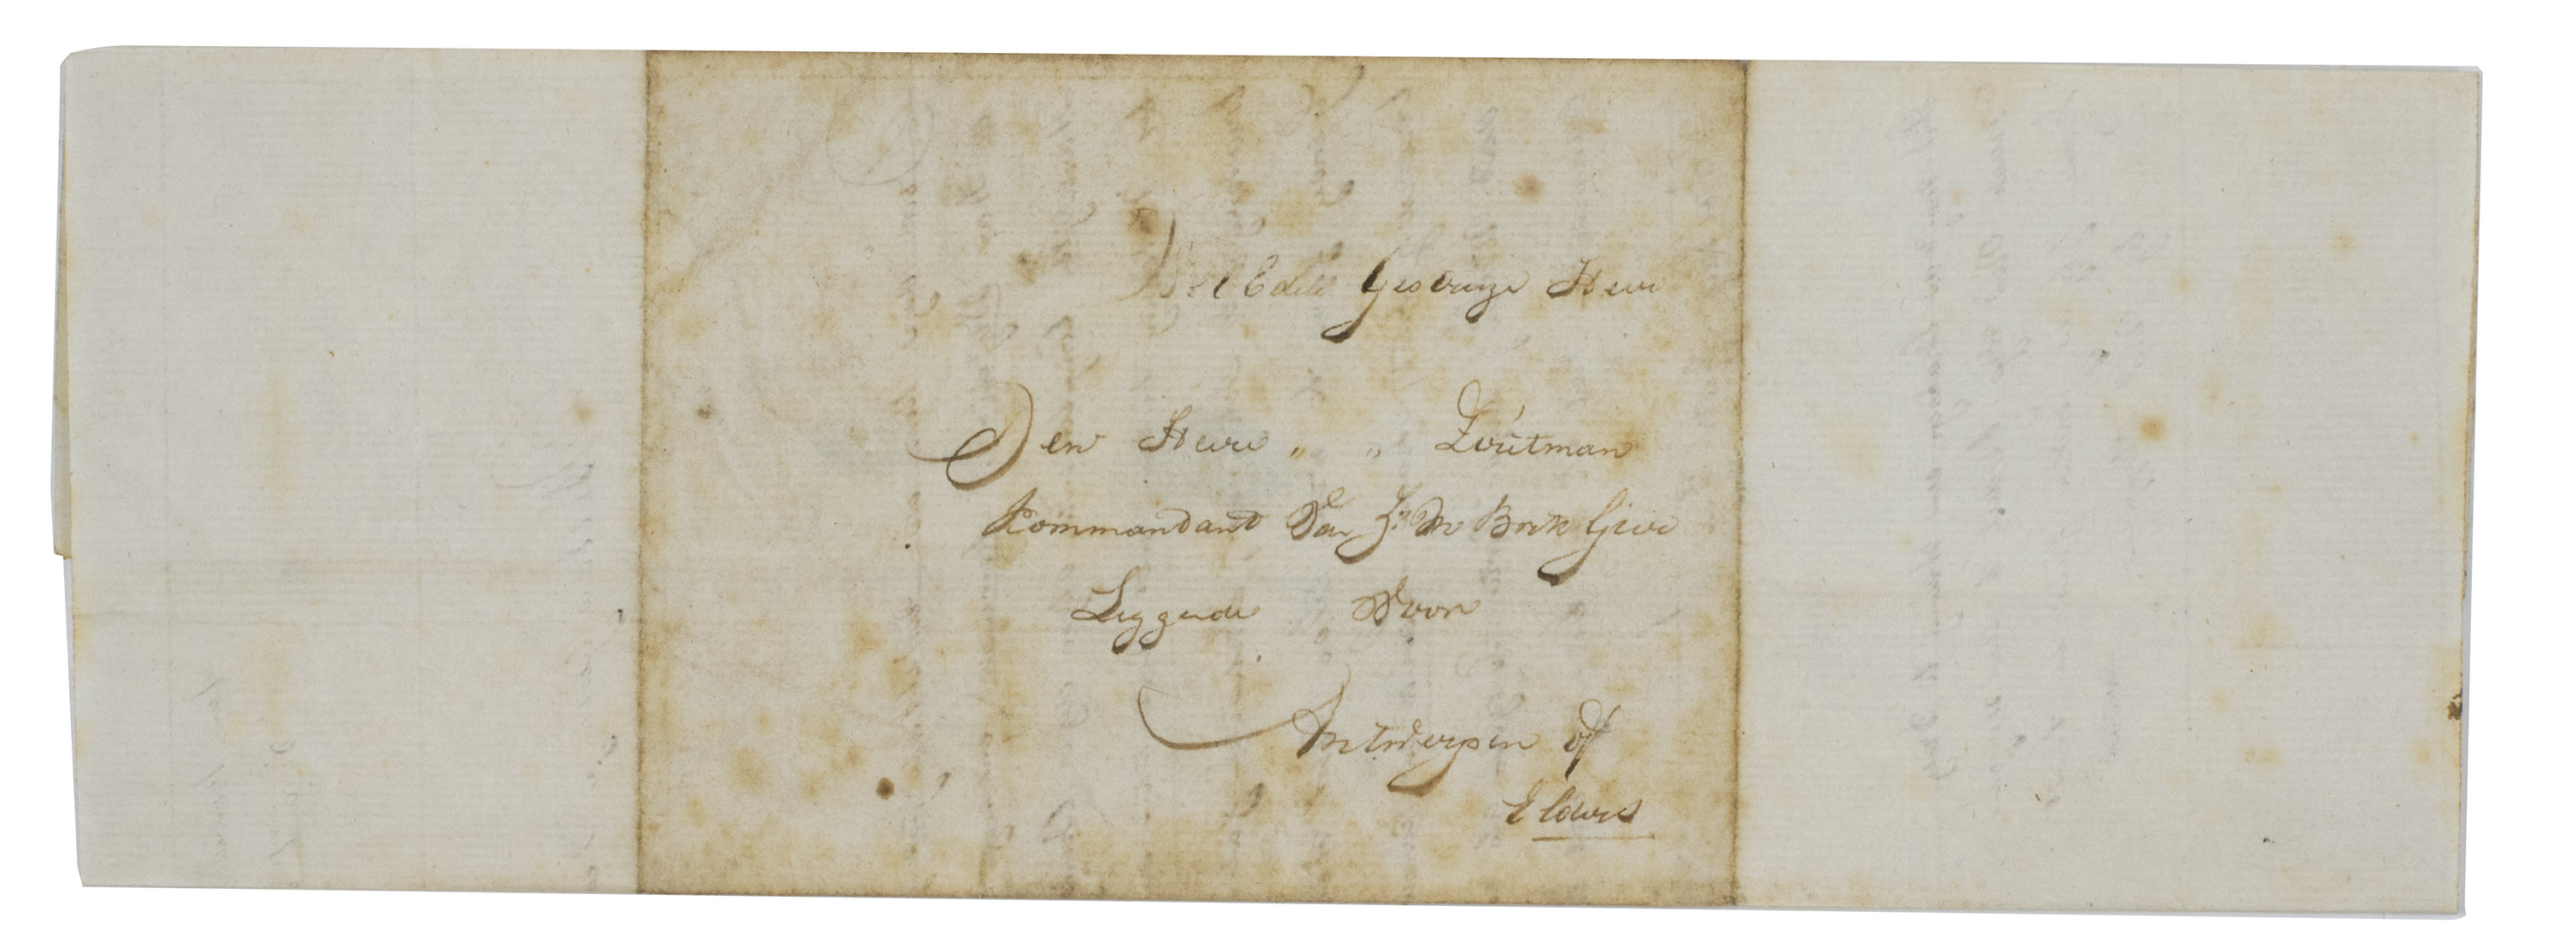 Wel Edele Gestrenge Heer
Den Heere „ „ Zoutman
Kommandant Van Z: M Brik Gier
Leggende Voor
Antwerpen of
Elders